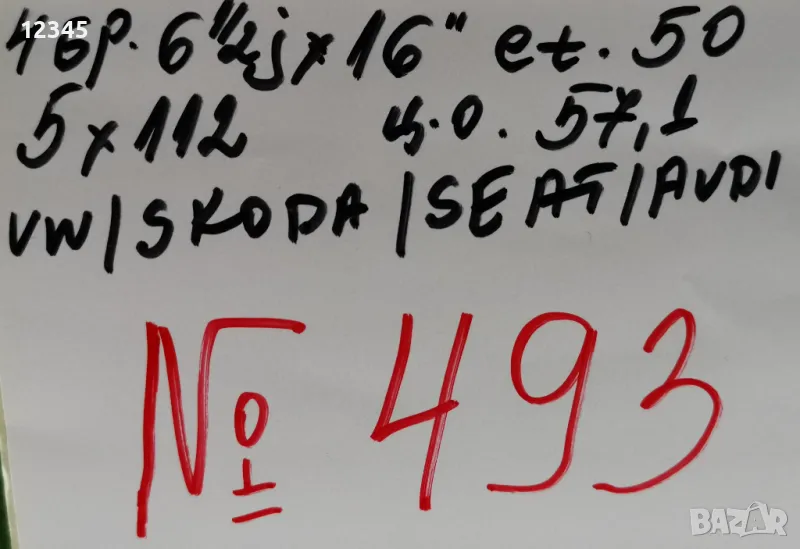 12345
4 бр. 6 1/2j x 16" et. 50
5 x 112 ц.о. 57,1
VW/SKODA/SEAT/AUDI
№ 493
BAZAR